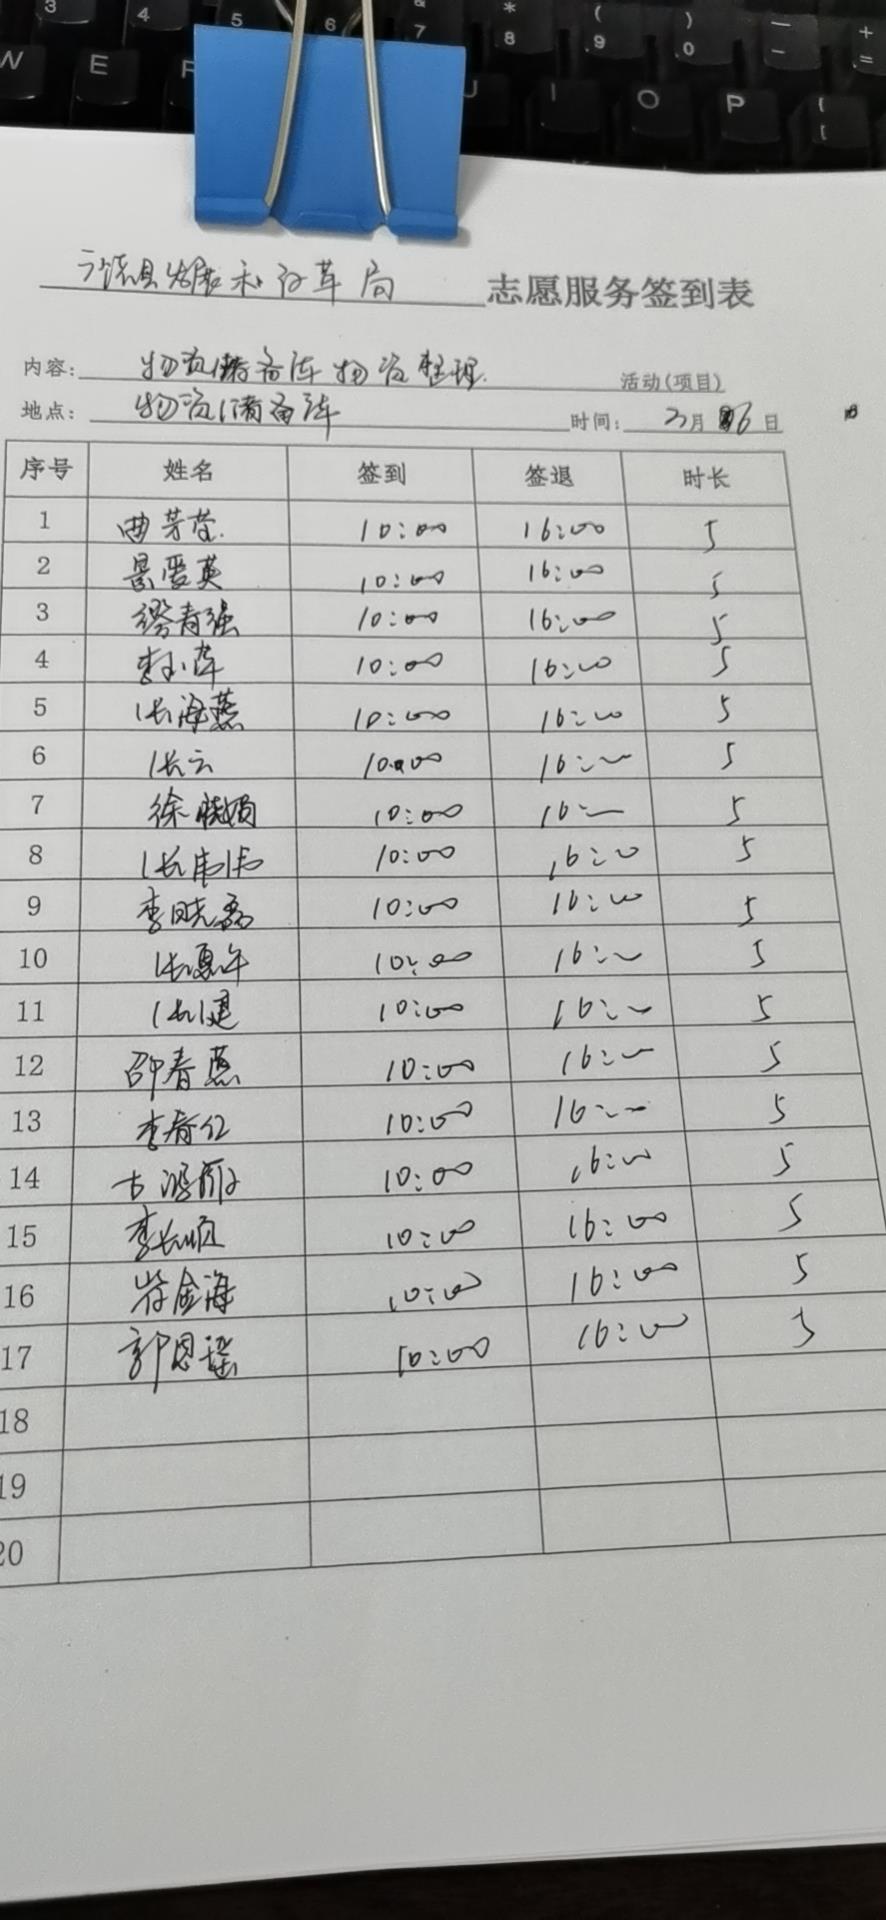 发展和改革局 志愿服务签到表
内容: 物资储备库物资整理 活动(项目)
地点: 物资储备库 时间: 月 6 日
序号 姓名 签到 签退 时长
1 曲芳莹 10:00 16:00 5
2 景爱英 10:00 16:00 5
3 缪青强 10:00 16:00 5
4 李小萍 10:00 16:00 5
5 张海燕 10:00 16:00 5
6 张云 10:00 16:00 5
7 徐晓娟 10:00 16:00 5
8 张 10:00 16:00 5
9 李晓磊 10:00 16:00 5
10 张 10:00 16:00 5
11 张健 10:00 16:00 5
12 邵春燕 10:00 16:00 5
13 李春红 10:00 16:00 5
14 古鸿 10:00 16:00 5
15 李长顺 10:00 16:00 5
16 金海 10:00 16:00 5
17 郭恩瑶 10:00 16:00 5
18
19
20